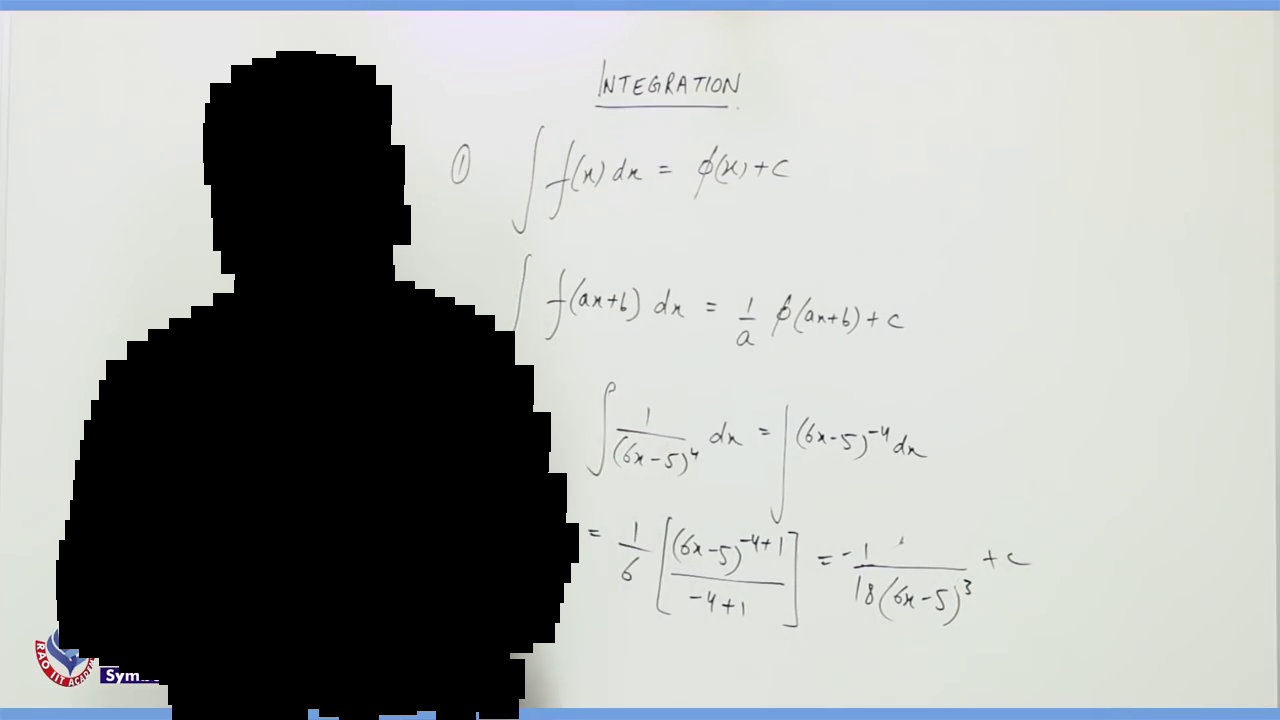 INTEGRATION
① ∫ f(x) dx = ϕ(x) + c
∫ f(ax+b) dx = 1/a ϕ(ax+b) + c
∫ 1/(6x-5)⁴ dx = ∫ (6x-5)⁻⁴ dx
= 1/6 [(6x-5)⁻⁴⁺¹/-4+1] = -1/18(6x-5)³ + c
RAO IIT ACADEM
Symb